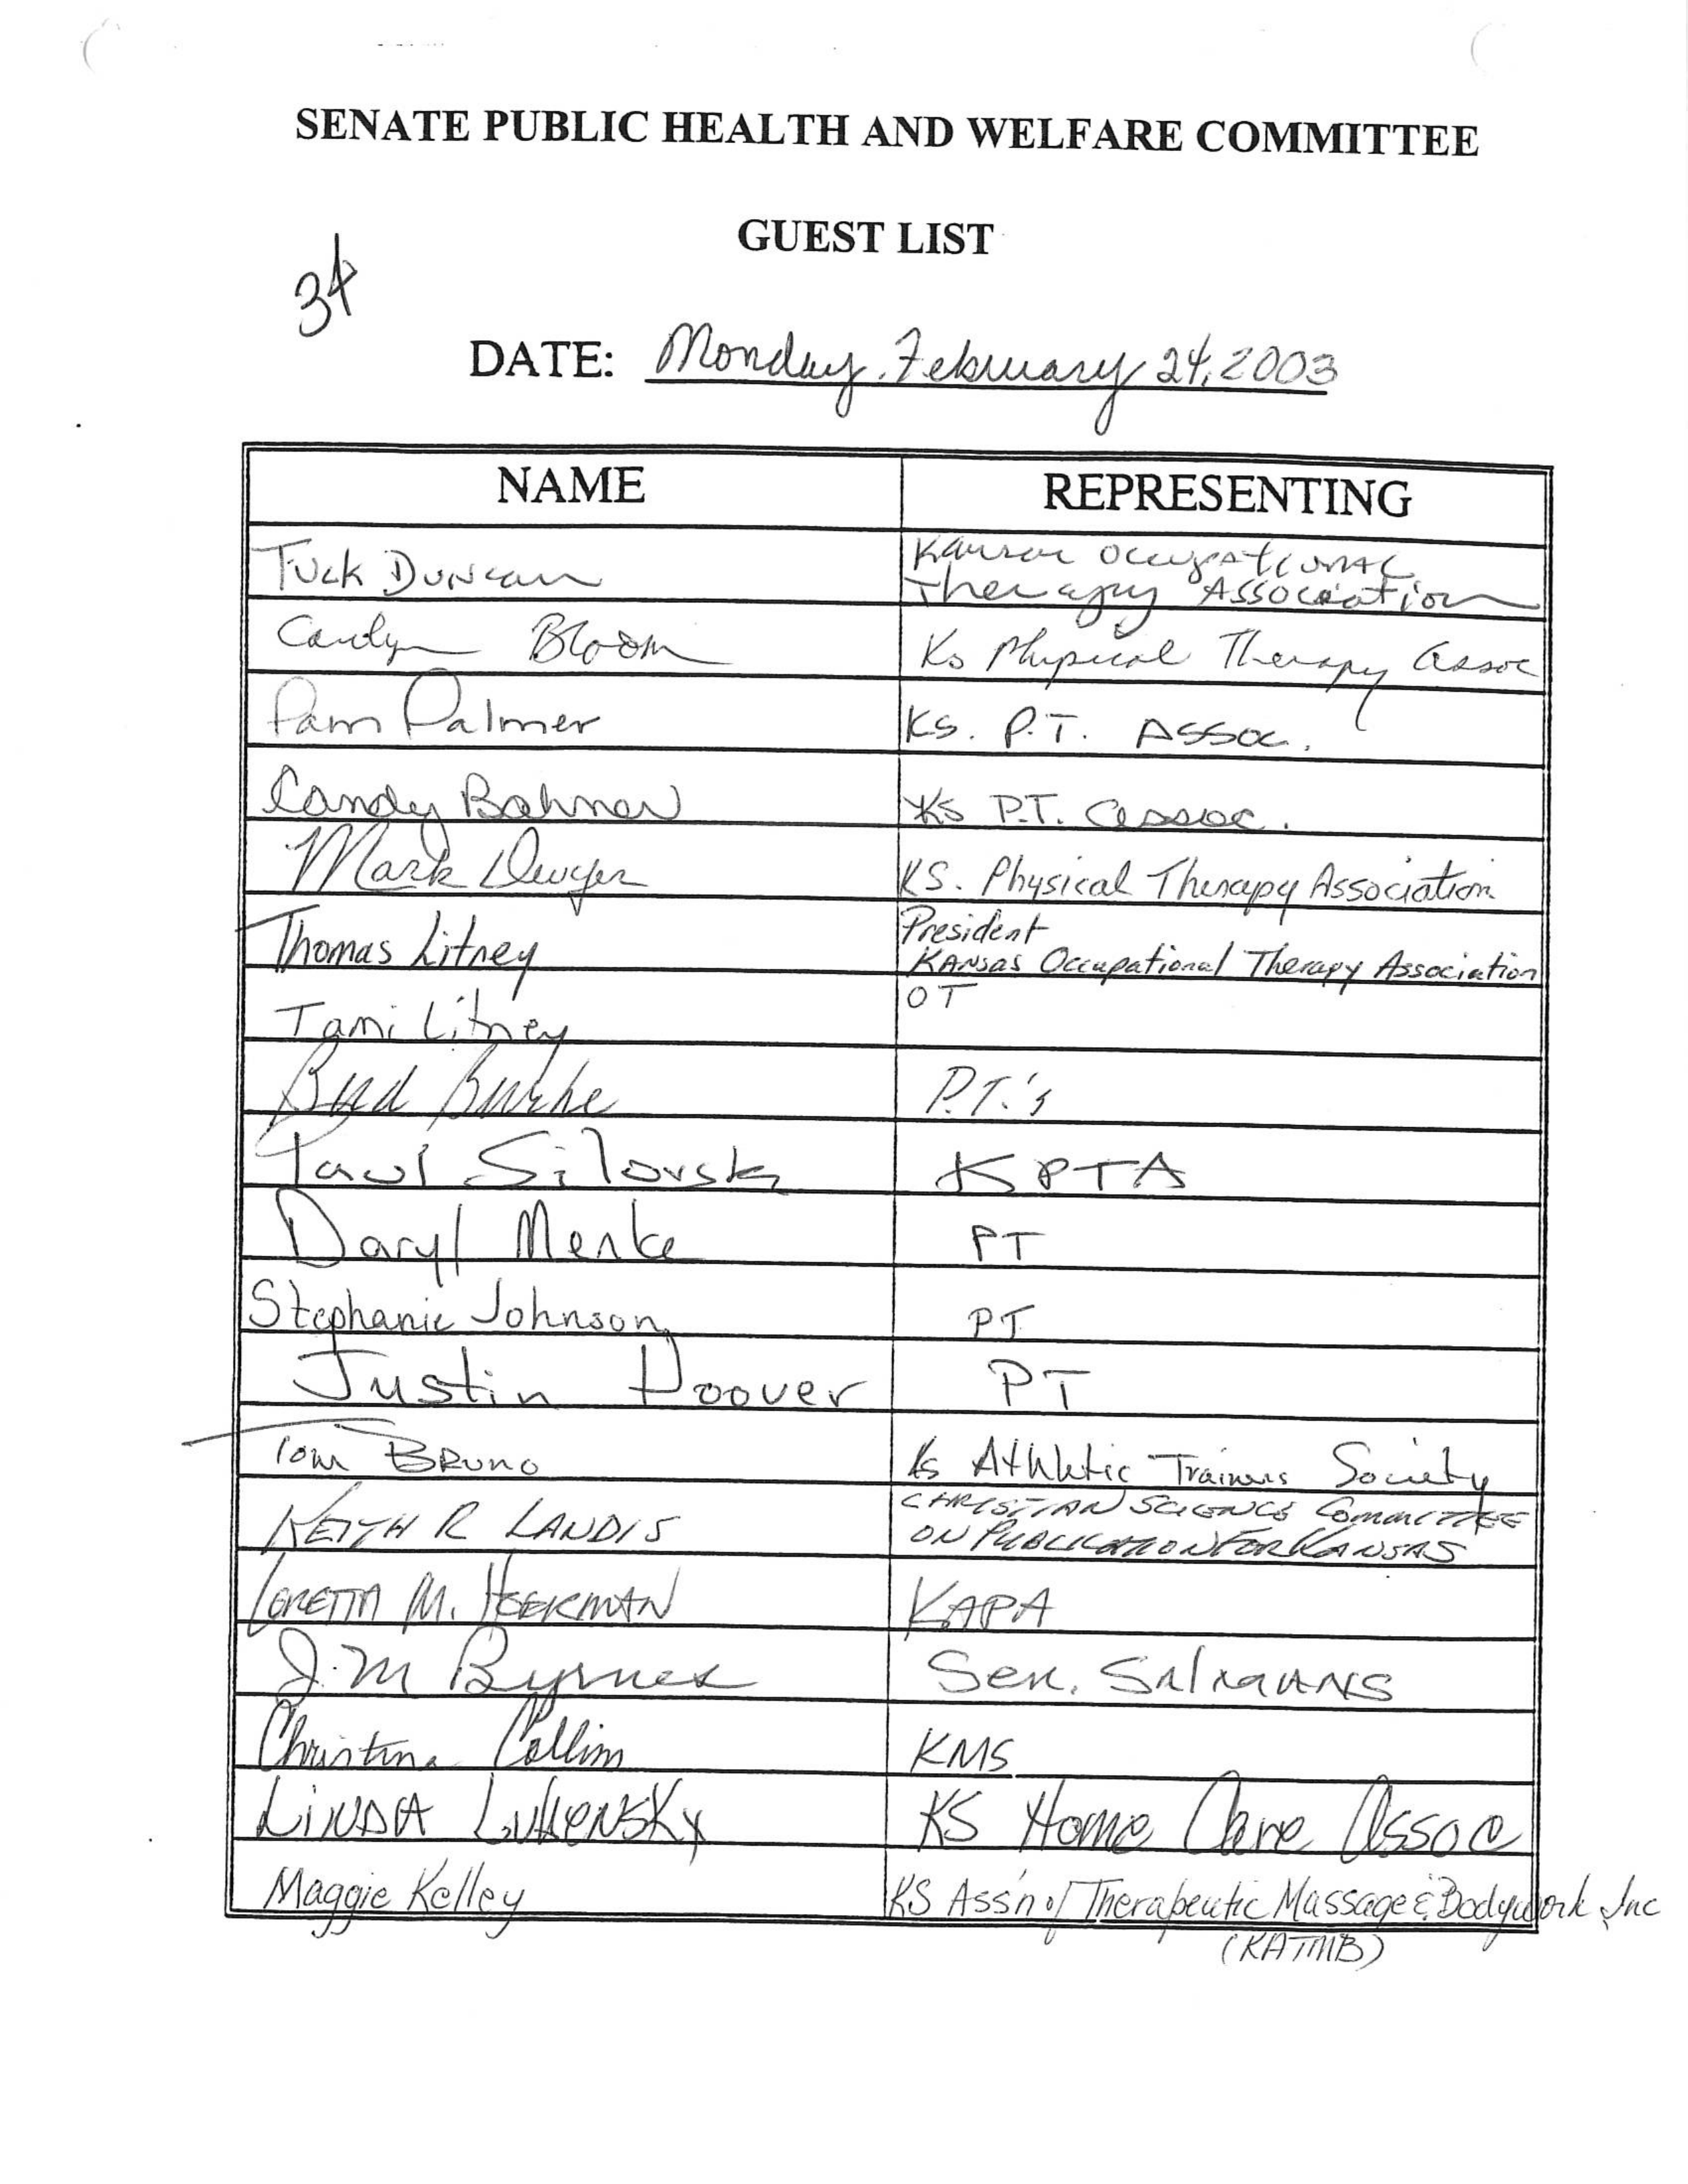 SENATE PUBLIC HEALTH AND WELFARE COMMITTEE
GUEST LIST
34
DATE: Monday, February 24, 2003
NAME REPRESENTING
Tuck Duncan Kansas Occupational
Therapy Association
Carolyn Bloom Ks Physical Therapy Assoc
Pam Palmer KS. P.T. Assoc.
Candy Bahner KS P.T. Assoc.
Mark Dwyer KS. Physical Therapy Association
Thomas Litney President
Kansas Occupational Therapy Association
Tami Litney OT
Bud Burke P.T.'s
Paul Silovsky KPTA
Daryl Menke PT
Stephanie Johnson PT
Justin Hoover PT
Tom Bruno Ks Athletic Trainers Society
KEITH R LANDIS CHRISTIAN SCIENCE COMMITTEE
ON PUBLICATION FOR KANSAS
LORETTA M. HOERMAN KAPA
J.M Byrnes Sen.
Christina Collins KMS
LINDA LUBENSKY KS Home Care Assoc
Maggie Kelley KS Ass'n of Therapeutic Massage & Bodywork, Inc
(KATMB)